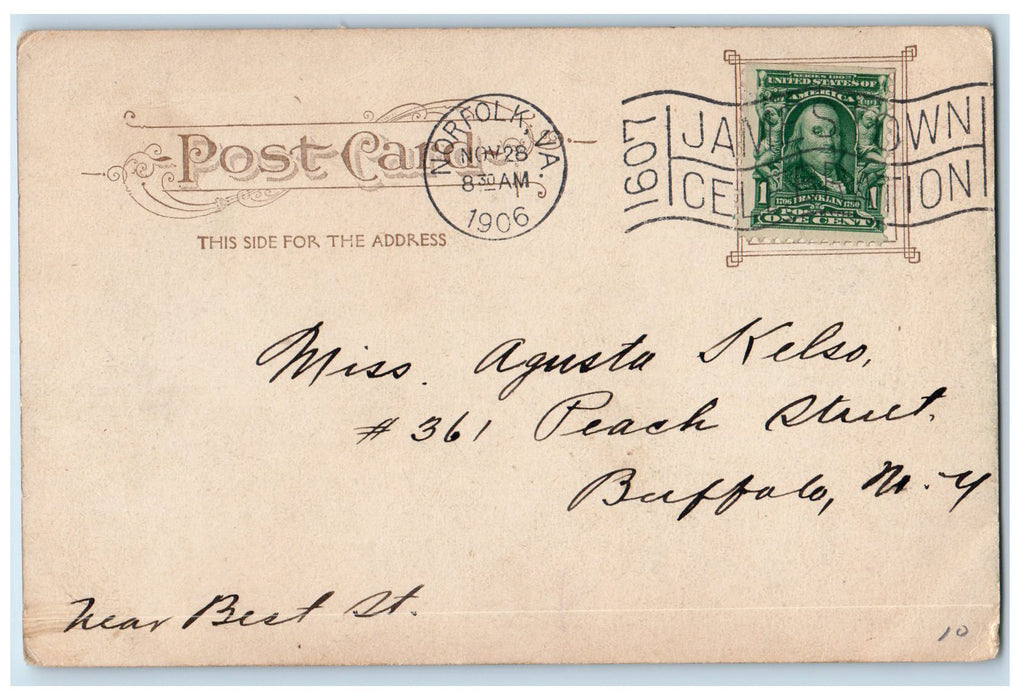 Post Card
THIS SIDE FOR THE ADDRESS
NORFOLK, VA.
NOV 28
8 30 AM
1906
1607
JAMESTOWN
CELEBRATION
SERIES 1902
UNITED STATES OF
AMERICA
1 1
1706 FRANKLIN 1790
POSTAGE
ONE CENT
Miss. Agusta Kelso,
# 361 Peach Street,
Buffalo, N. Y
near Best St.
10